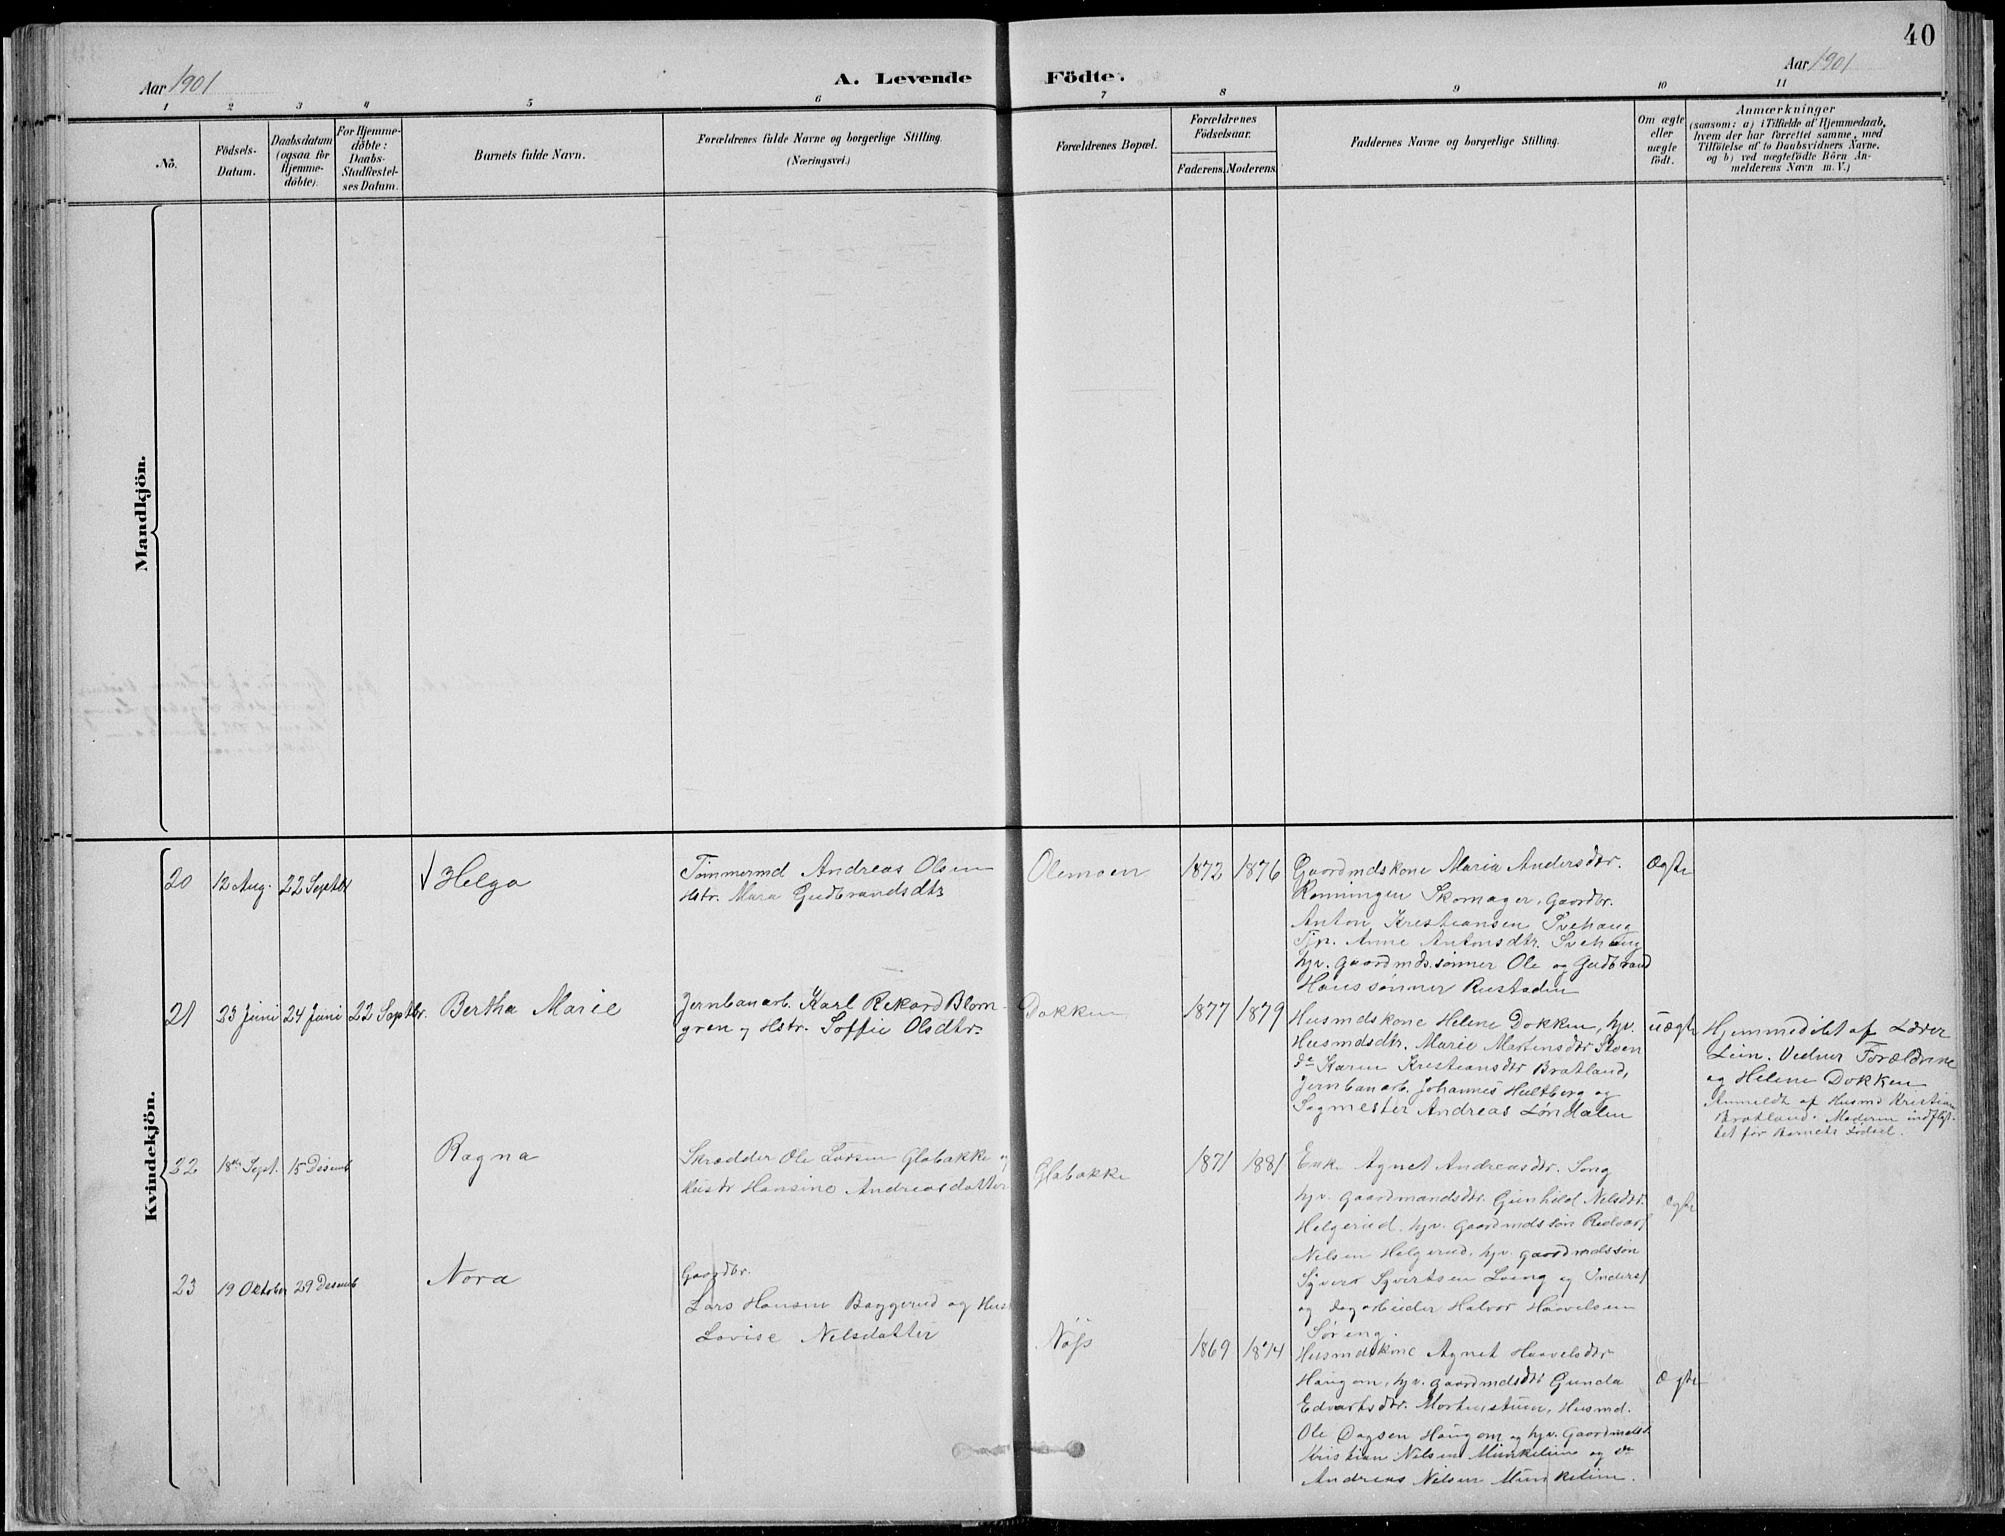 40
Aar 1901
A. Levende Födte.
Aar 1901
1 2 3 4 5 6 7 8 9 10 11
No.
Födsels-
Datum.
Daabsdatum
(ogsaa for
Hjemme-
döbte).
For Hjemme-
döbte:
Daabs-
Stadfæstel-
ses Datum.
Barnets fulde Navn.
Forældrenes fulde Navne og borgerlige Stilling.
(Næringsvei.)
Forældrenes Bopæl.
Forældrenes
Födselsaar.
Faderens. Moderens.
Faddernes Navne og borgerlige Stilling.
Om ægte
eller
uægte
födt.
Anmærkninger
(saasom: a) i Tilfælde af Hjemmedaab,
hvem der har forrettet samme, med
Tilföielse af to Daabsvidners Navne.
og b) ved uægtefödte Börn An-
melderens Navn m. V.)
Mandkjön.
Kvindekjön.
20 12 Aug. 22 Septbr Helga
Tømmermd Andreas Olsen
Hstr. Mara Gudbrandsdtr
Olemoen 1872 1876
Gaardmdskone Maria Andersdtr.
Rønningen Skomager, Gaardbr.
Anton Kristiansen Svehaug
Tjp. Anne Antonsdtr. Svehaug
hjv. Gaardmds.sønner Ole og Gudbrand
Hanssønner Rustaden
Ægte
21 23 Juni 24 Juni 22 Septbr. Bertha Marie
Jernbanarb. Karl Rikard Blom-
gren og Hstr. Soffie Olsdtr.
Dokken 1877 1879
Husmdskone Helene Dokken, hjv.
Husmdsdtr. Marie Martinsdtr Stoen
do Karen Kristiansdtr Bratland,
Jernbanarb. Johannes Hultberg og
Sagmester Andreas Løndalen
uægte
Hjemmedøbt af Lærer
Lien. Vidner Forældrene
og Helene Dokken
Anmeldt af Husmd Kristian
Bratland. Moderen indflyt-
tet før Barnets Fødsel.
22 18de Sept. 15 Desemb Ragna
Skrædder Ole Larsen Glabakke og
Hustr Hansine Andreasdatter
Glabakke 1871 1881
Enke Agnet Andreasdtr. Song
hjv. Gaardmandsdtr. Gunhild Nelsdtr.
Helgerud, hjv. Gaardmdssøn Redvarf
Nilsen Helgerud, hjv. gaardmdssøn
Syver Syvertsen Loeng og
og dagarbeider Halvor Haavelsen
Søreng.
Ægte
23 19 Oktober 29 Desemb Nora
Gaardbr.
Lars Hansen Baggerud og Hus
Lovise Nelsdatter
Nøss 1869 1874
Husmdskone Agnet Haavelsdtr
Haugom, hjv. gaardmdsdtr Gunda
Edvartsdtr. Mortenstuen, Husmd.
Ole Dagsen Haugom og hjv. Gaardmdss.
Kristian Nilsen Munkelien og do
Andreas Nilsen Munkelien.
Ægte